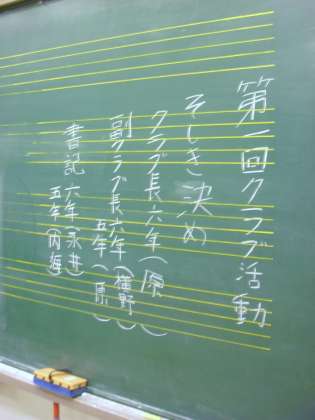 第一回クラブ活動
そしき決め
クラブ長 六年(原)
副クラブ長 六年(槇野)
五年(原)
書記 六年(永井)
五年(内海)